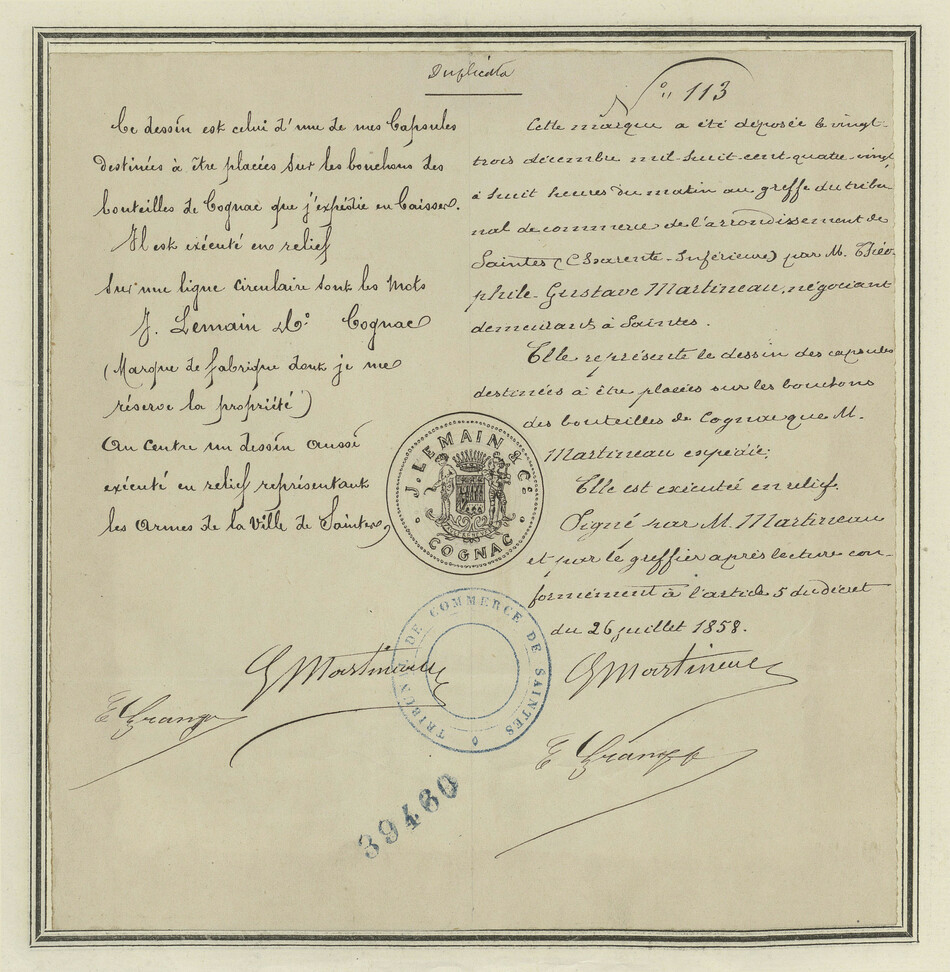 Duplicata
Ce dessin est celui d'une de mes Capsules
destinées à être placées sur les bouchons des
bouteilles de Cognac que j'expédie en Caisses.
Il est exécuté en relief
sur une ligne circulaire sont les mots
J. Lemain & Cº Cognac
(Marque de fabrique dont je me
réserve la propriété)
Au Centre un dessin aussi
exécuté en relief représentant
les Armes de la Ville de Saintes,
G Martineau
Nº 113
Cette marque a été déposée le vingt-
trois décembre mil-huit-cent-quatre-vingt
à huit heures du matin au greffe du tribu-
nal de commerce de l'arrondissement de
Saintes (Charente-Inférieure) par M. Théo-
phile-Gustave Martineau, négociant
demeurant à Saintes.
Elle représente le dessin des capsules
destinées à être placées sur les bouchons
des bouteilles de Cognac que M.
Martineau expédie;
Elle est exécutée en relief.
Signé par M. Martineau
et par le greffier après lecture con-
formément à l'article 5 du décret
du 26 juillet 1858.
G Martineau
J. LEMAIN & Cº
COGNAC
TRIBUNAL DE COMMERCE DE SAINTES
39460